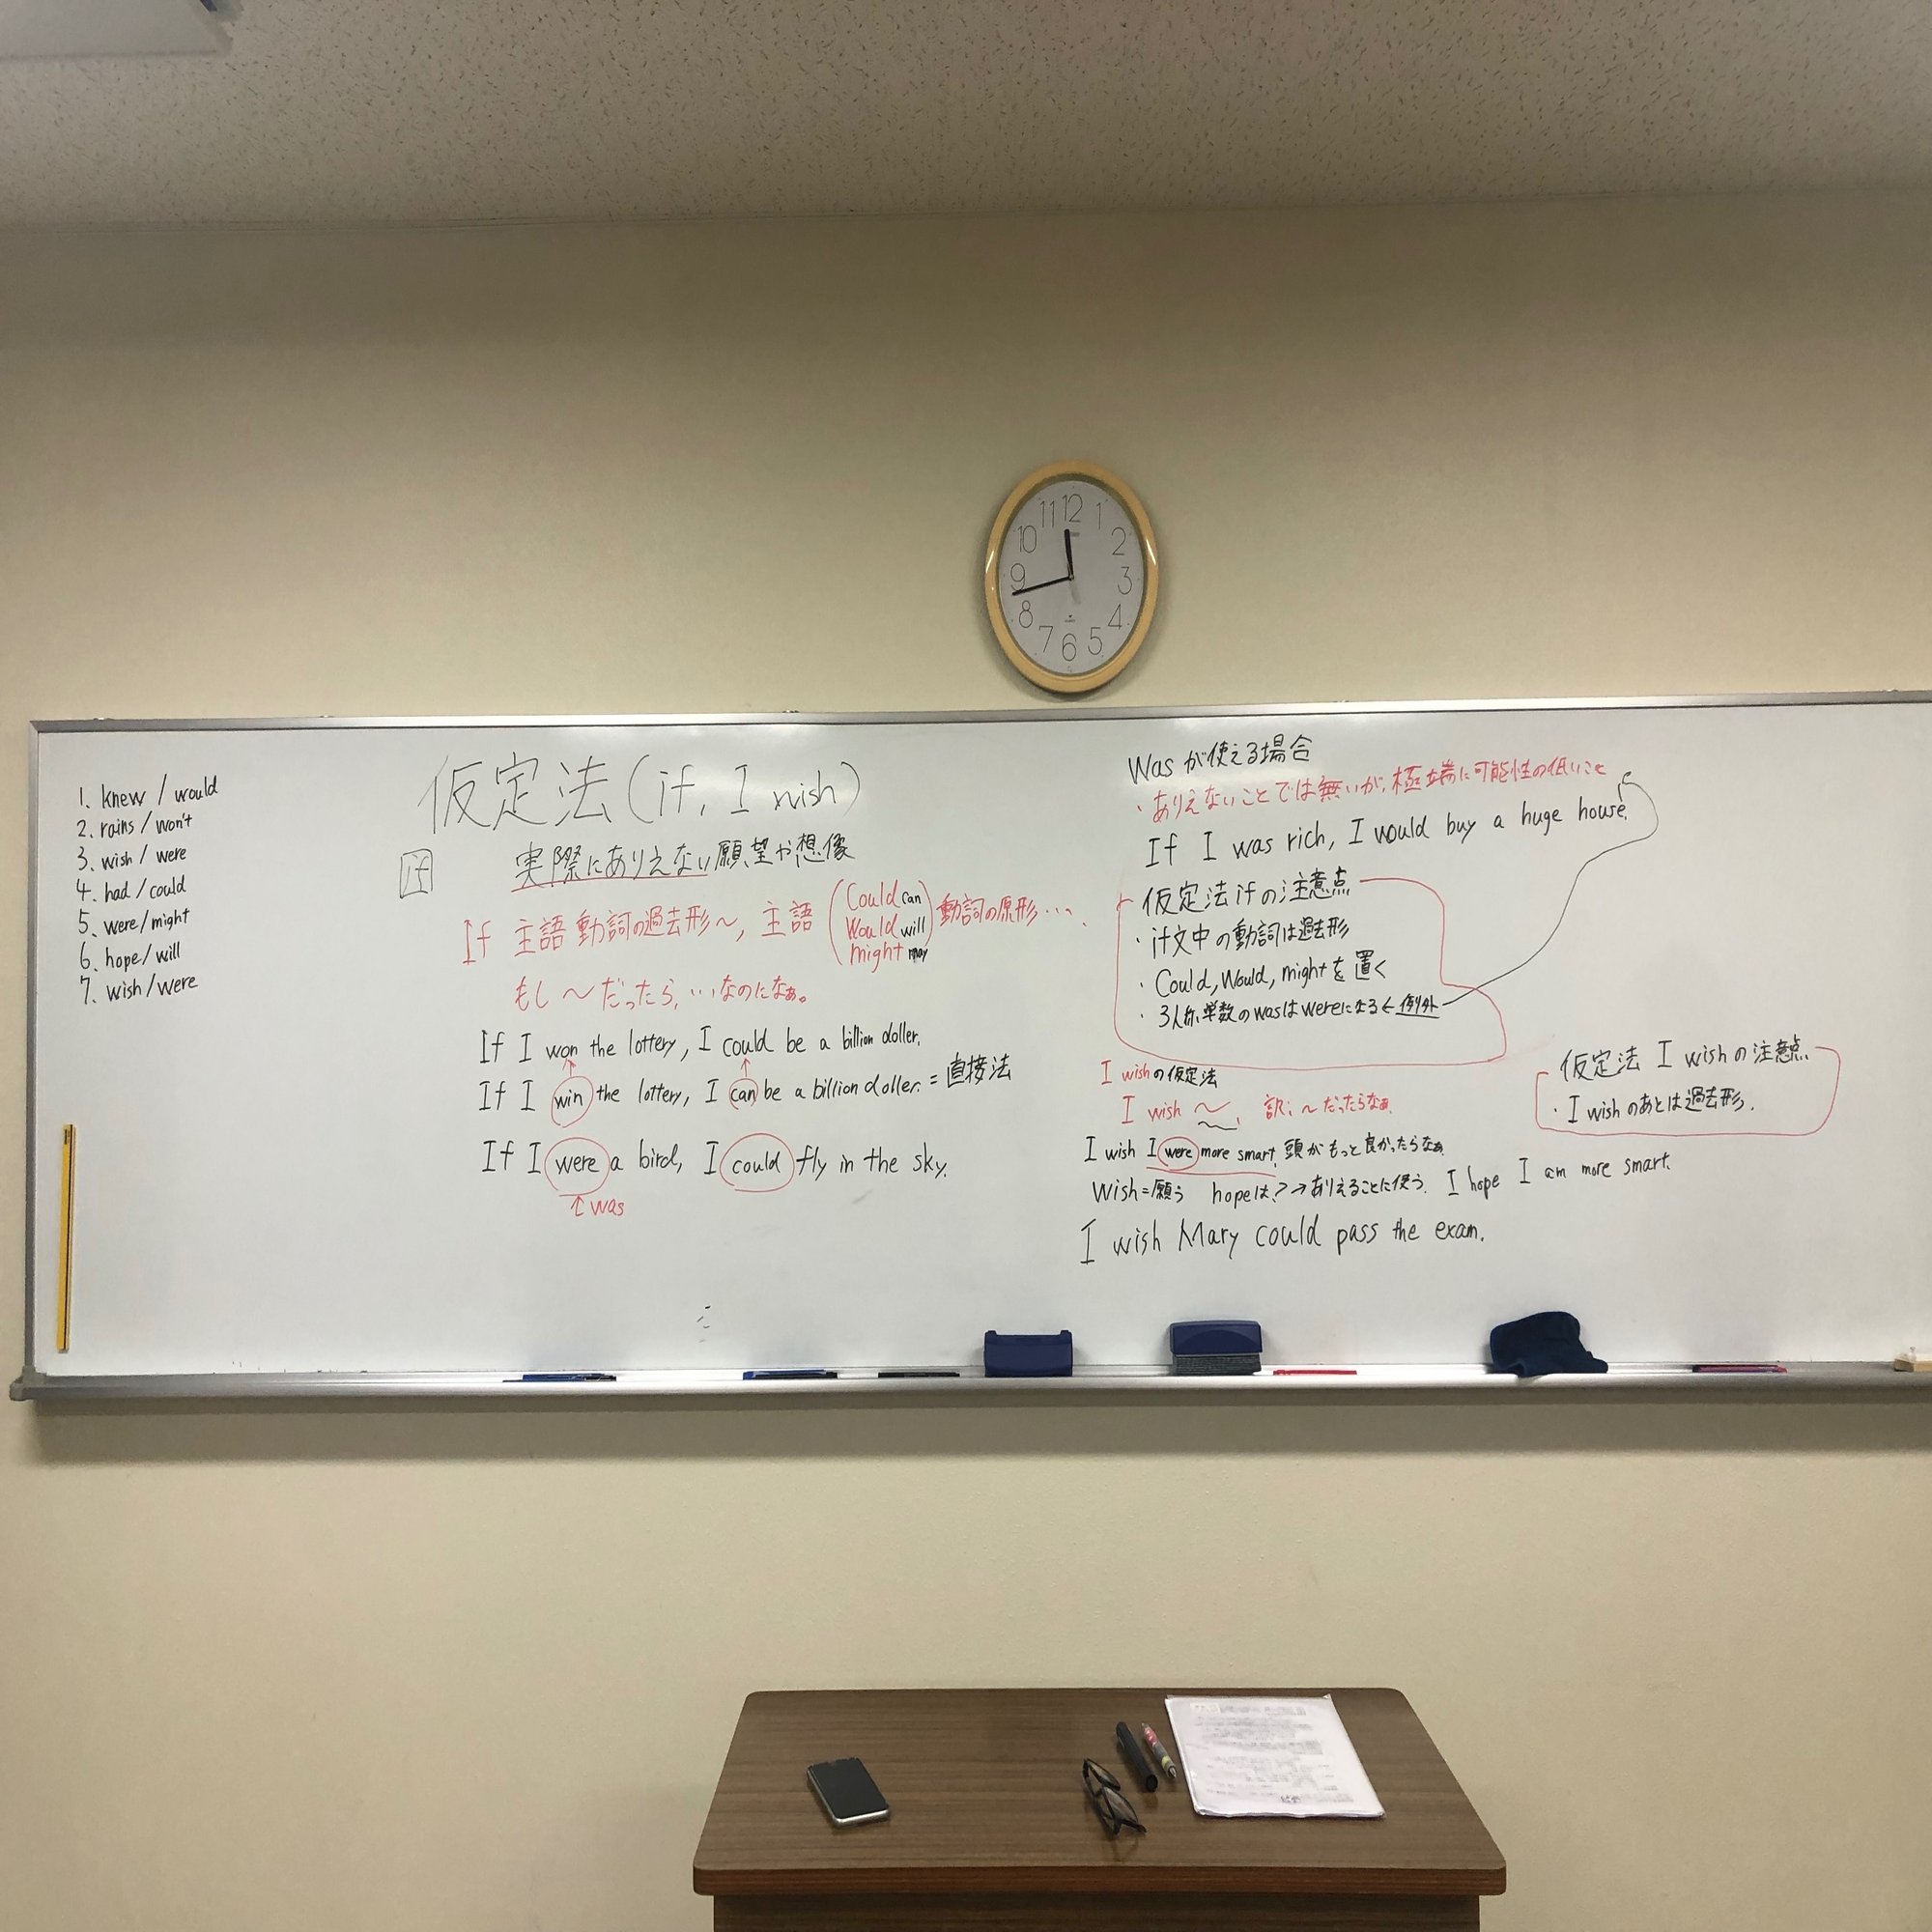 11 12 1
10 2
9 3
8 4
7 6 5
1. knew / would
2. rains / won't
3. wish / were
4. had / could
5. were / might
6. hope / will
7. wish / were
仮定法 (if, I wish)
if 実際にありえない願望や想像
If 主語 動詞の過去形〜, 主語 (Could can Would will might may) 動詞の原形…
もし 〜だったら, …なのになぁ。
If I won the lottery, I could be a billion doller.
If I win the lottery, I can be a billion doller. = 直接法
If I were a bird, I could fly in the sky.
↑ was
Was が使える場合
・ありえないことでは無いが, 極端に可能性の低いこと
If I was rich, I would buy a huge house.
仮定法 if の注意点
・if文中の動詞は過去形
・Could, Would, might を置く
・3人称単数のwasはwereになる ← 例外
I wishの仮定法
I wish 〜. 訳: 〜だったらなぁ.
I wish I were more smart. 頭がもっと良かったらなぁ.
Wish=願う hopeは? → ありえることに使う. I hope I am more smart.
I wish Mary could pass the exam.
仮定法 I wish の注意点
・I wish のあとは過去形.